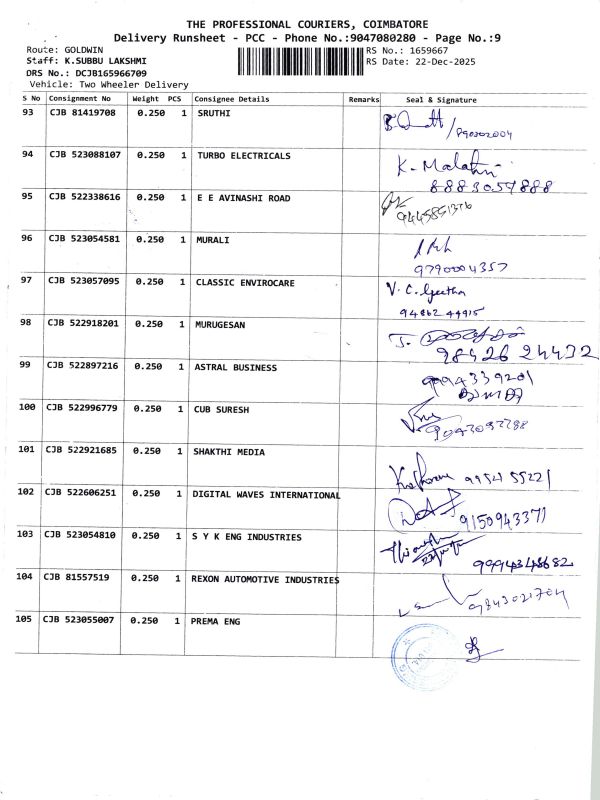 THE PROFESSIONAL COURIERS, COIMBATORE
Delivery Runsheet - PCC - Phone No.:9047080280 - Page No.:9
Route: GOLDWIN RS No.: 1659667
Staff: K.SUBBU LAKSHMI RS Date: 22-Dec-2025
DRS No.: DCJB165966709
Vehicle: Two Wheeler Delivery
S No Consignment No Weight PCS Consignee Details Remarks Seal & Signature
93 CJB 81419708 0.250 1 SRUTHI
94 CJB 523088107 0.250 1 TURBO ELECTRICALS K. Malathi
8883057888
95 CJB 522338616 0.250 1 E E AVINASHI ROAD
9445851376
96 CJB 523054581 0.250 1 MURALI
9790004357
97 CJB 523057095 0.250 1 CLASSIC ENVIROCARE V. C. Geetha
94862 44915
98 CJB 522918201 0.250 1 MURUGESAN
98426 24432
99 CJB 522897216 0.250 1 ASTRAL BUSINESS 9994339201
100 CJB 522996779 0.250 1 CUB SURESH
101 CJB 522921685 0.250 1 SHAKTHI MEDIA 99545 55221
102 CJB 522606251 0.250 1 DIGITAL WAVES INTERNATIONAL
9150943371
103 CJB 523054810 0.250 1 S Y K ENG INDUSTRIES
104 CJB 81557519 0.250 1 REXON AUTOMOTIVE INDUSTRIES 9843021704
105 CJB 523055007 0.250 1 PREMA ENG